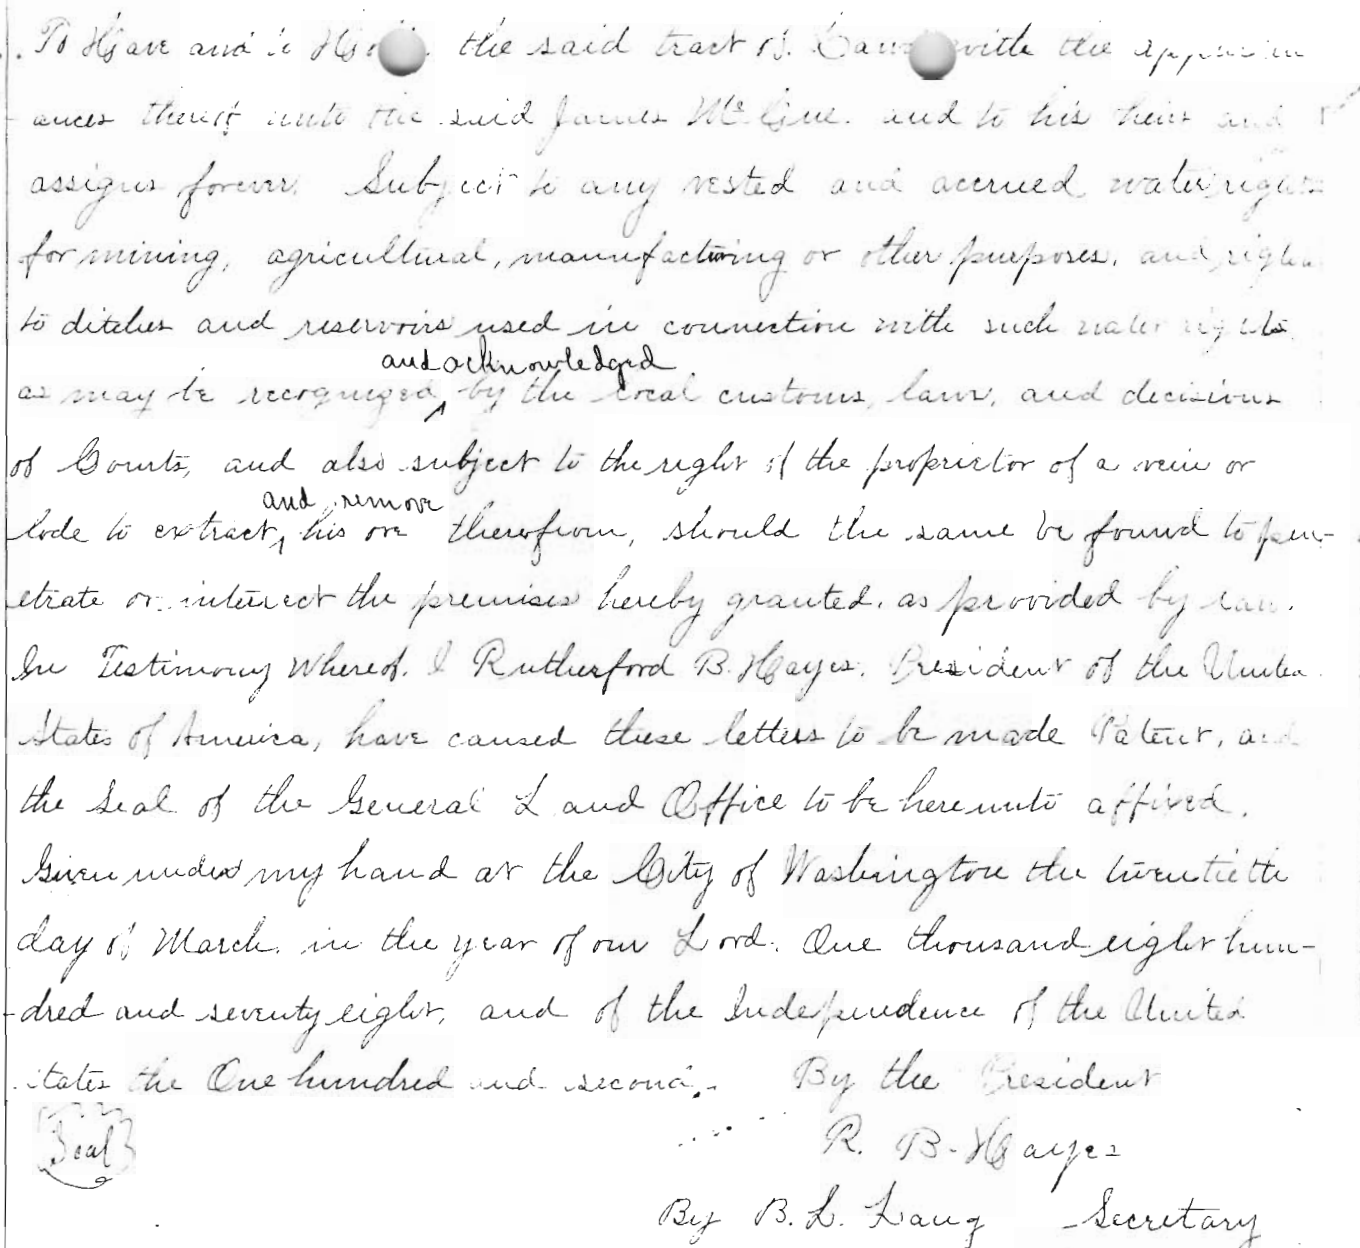 To Have and to Hold the said tract of Land with the appurten
ances thereof unto the said James McGue. and to his heirs and
assigns forever. Subject to any vested and accrued water rights
for mining, agricultural, manufacturing or other purposes, and rights
to ditches and reservoirs used in connection with such water rights
and acknowledged
as may be recognized, by the local customs, laws, and decisions
of Courts, and also subject to the right of the proprietor of a vein or
and remove
lode to extract, his ore therefrom, should the same be found to pen-
etrate or intersect the premises hereby granted, as provided by law.
In Testimony Whereof, I Rutherford B. Hayes, President of the United
States of America, have caused these letters to be made Patent, and
the Seal of the General Land Office to be hereunto affixed.
Given under my hand at the City of Washington the twentieth
day of March, in the year of our Lord, One thousand eight hun-
dred and seventy eight, and of the Independence of the United
States the One hundred and second. By the President
Seal
R. B. Hayes
By B. L. Lang Secretary